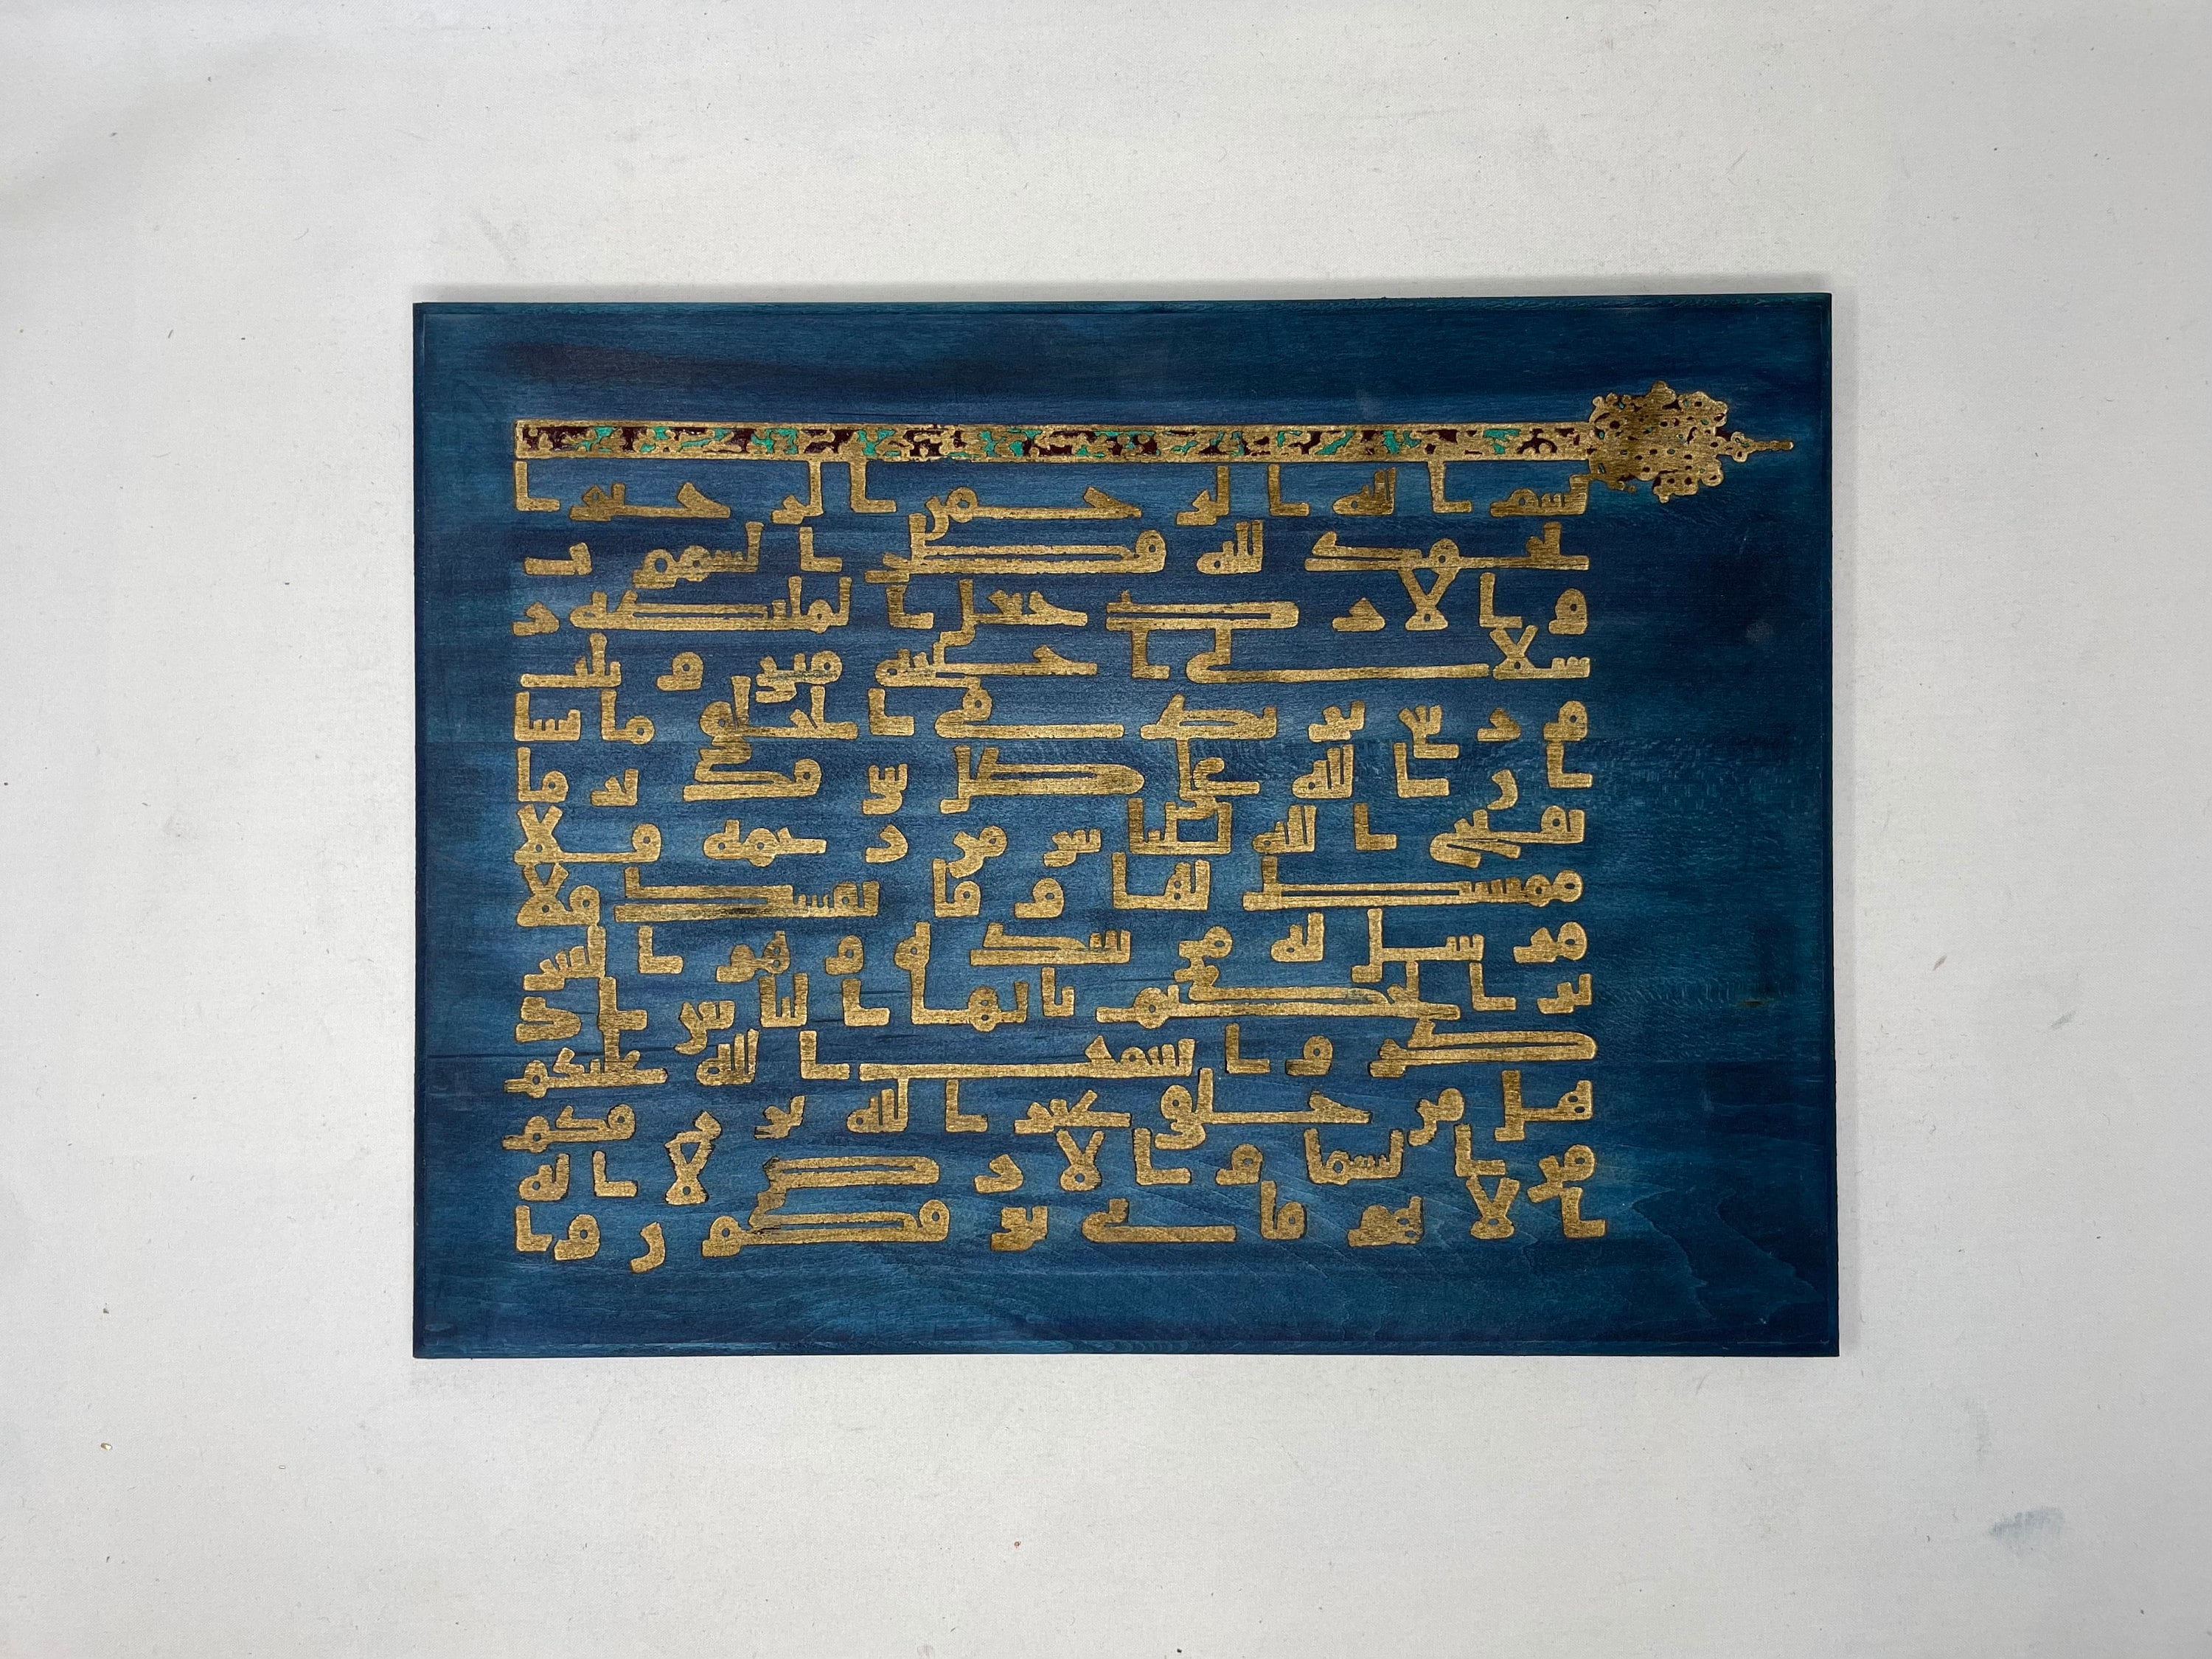 بسم الله الرحمن الرحيم ا
لحمد لله فطر السموت
و الارض جعل الملئكه ر
سلا اولى اجنحه مثنى و ثلث
و ربع يزيد فى الخلق ما يشا
ان الله على كل شى قدير ما
يفتح الله للناس من رحمه فلا
ممسك لها و ما يمسك فلا
مرسل له من بعده و هو العز
يز الحكيم يايها الناس ا ذ
كروا نعمت الله عليكم
هل من خلق غير الله يرزقكم
من السما و الارض لا اله
الا هو فانى توفكون و ا